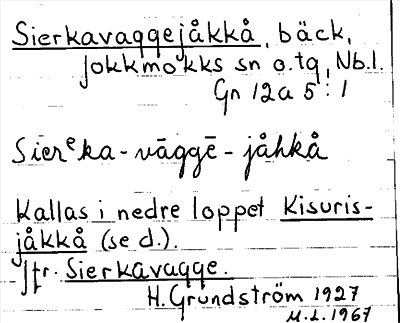 Sierkavaggejåkkå, bäck,
Jokkmokks sn o.tg, Nb.l.
Gn 12a 5 : 1
Sierᵉka-vāggē-jåhkå
Kallas i nedre loppet Kisuris-
jåkkå (se d.).
Jfr. Sierkavagge.
H. Grundström 1927
M.L. 1967